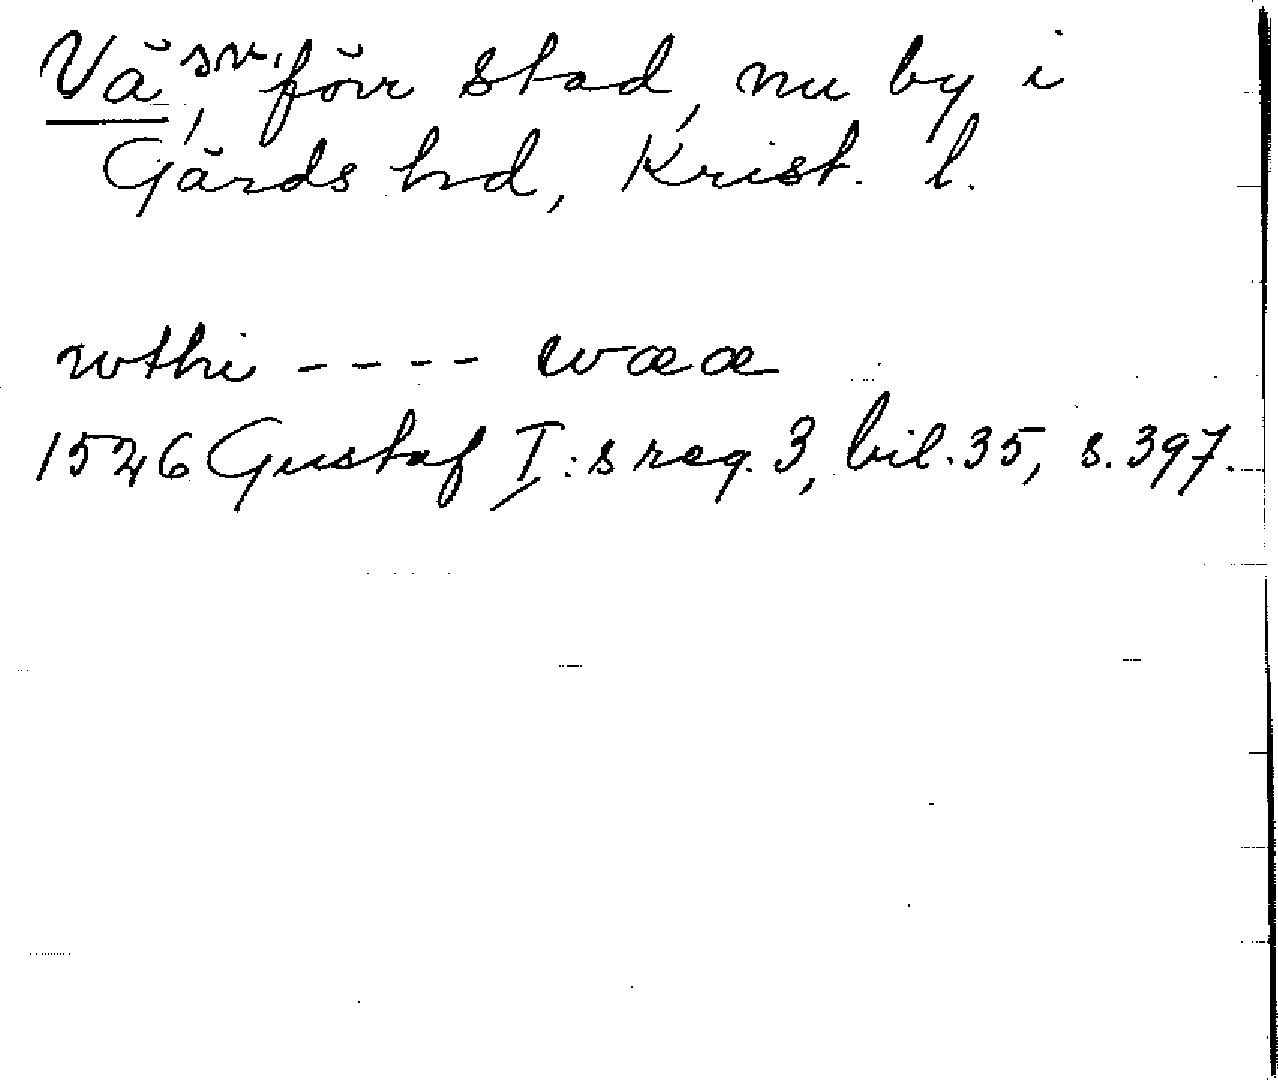 Vä, sn, förr stad, nu by i
Gärds hd, Krist. l.
wthi ---- wææ
1526 Gustaf I:s reg. 3, bil. 35, s. 397.